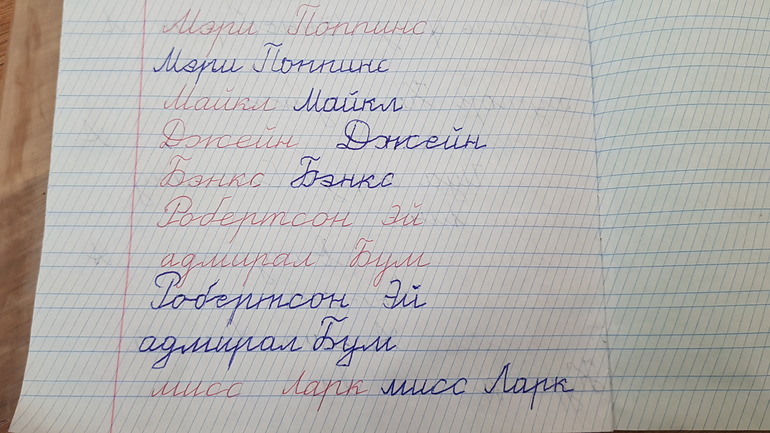 Мэри Поппинс.
Мэри Поппинс
Майкл Майкл
Джейн Джейн
Бэнкс Бэнкс
Робертсон Эй
адмирал Бум
Робертсон Эй
адмирал Бум
мисс Ларк мисс Ларк